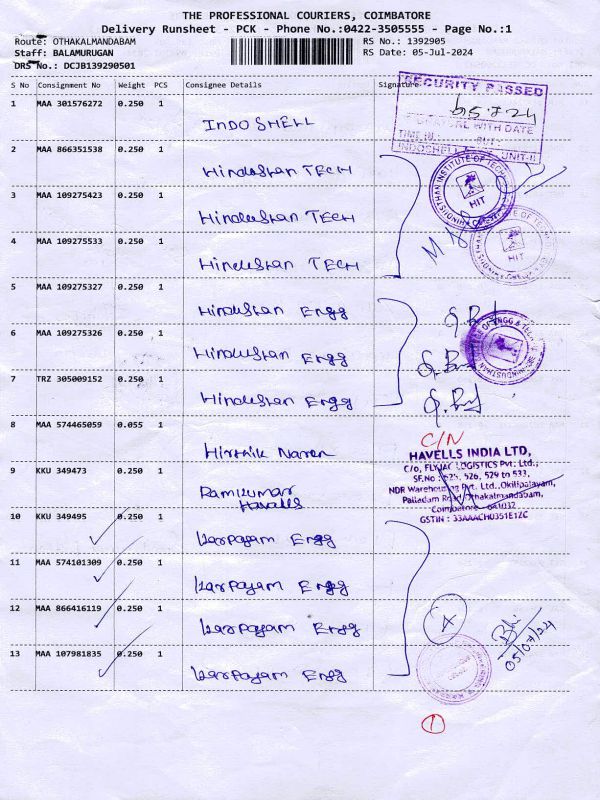 THE PROFESSIONAL COURIERS, COIMBATORE
Delivery Runsheet - PCK - Phone No.:0422-3505555 - Page No.:1
Route: OTHAKALMANDABAM RS No.: 1392905
Staff: BALAMURUGAN RS Date: 05-Jul-2024
DRS No.: DCJB139290501
S No Consignment No Weight PCS Consignee Details Signature
SECURITY PASSED
1 MAA 301576272 0.250 1 INDO SHELL
05-7-24
WITH DATE
TIME IN
INDOSHELL UNIT-II
2 MAA 866351538 0.250 1 Hindustan TECH
3 MAA 109275423 0.250 1 Hindustan TECH
HIT
4 MAA 109275533 0.250 1 Hindustan TECH
HIT
5 MAA 109275327 0.250 1 Hindustan Engg
6 MAA 109275326 0.250 1 Hindustan Engg
7 TRZ 305009152 0.250 1 Hindustan Engg
8 MAA 574465059 0.055 1 Hirthik Naren
C/N
HAVELLS INDIA LTD,
C/o, FLYJAC LOGISTICS Pvt: Ltd.,
SF.No : 525, 526, 529 to 533,
NDR Warehousing Pvt. Ltd.,Okilipalayam,
Palladam Road, Othakalmandabam,
Coimbatore - 641032
GSTIN : 33AAACH0351E1ZC
9 KKU 349473 0.250 1 Ramkumar
Havells
10 KKU 349495 0.250 1 Karpagam Engg
11 MAA 574101309 0.250 1 Karpagam Engg
12 MAA 866416119 0.250 1 Karpagam Engg
4
05/07/24
13 MAA 107981835 0.250 1 Karpagam Engg
1